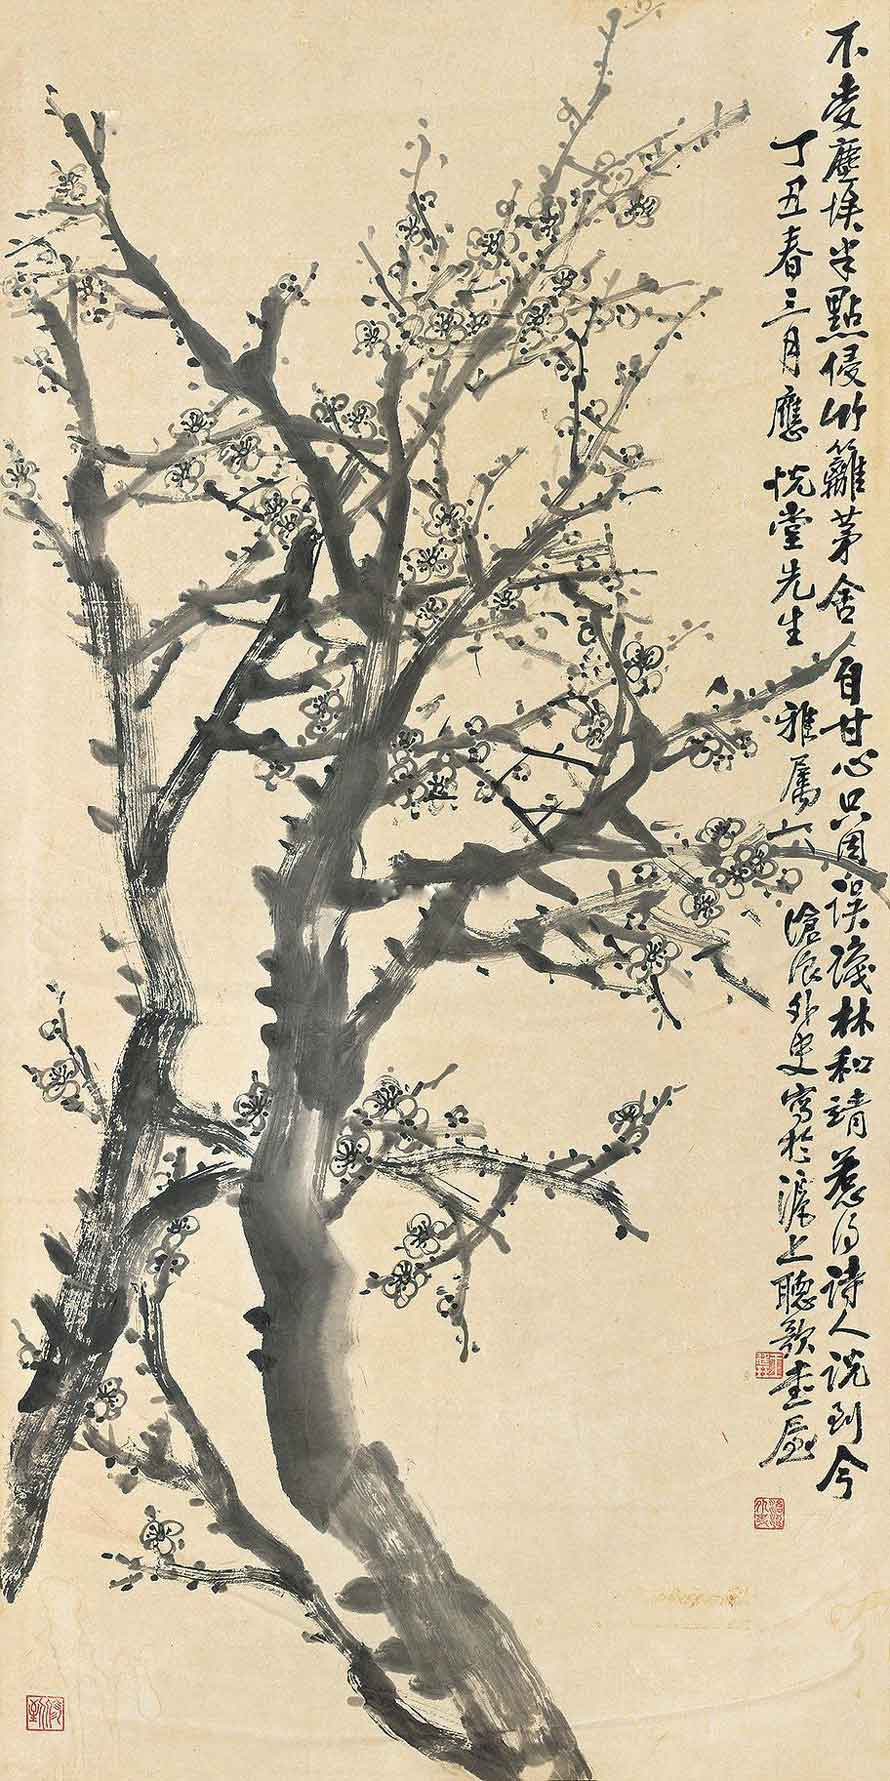 不受塵埃半點侵竹籬茅舍自甘心只因誤識林和靖惹得詩人說到今
丁丑春三月應 恍堂先生 雅屬 滄浪外史寫於滬上聽歌畫廬